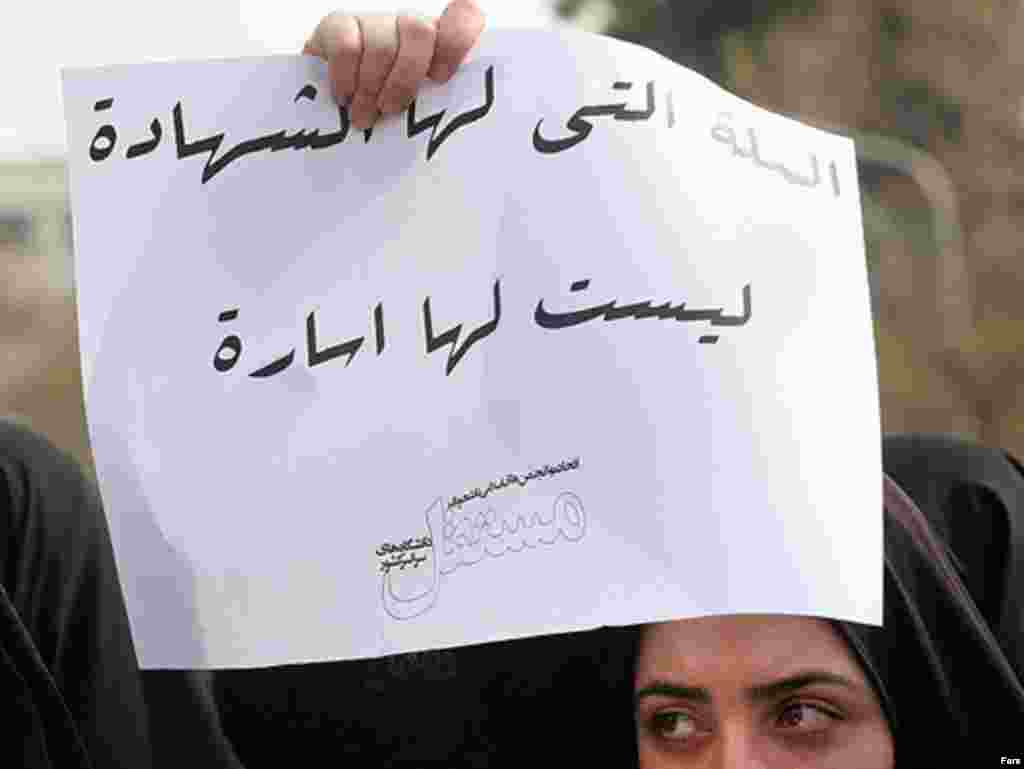 الملة التی لها الشهادة
لیست لها اسارة
اتحادیه انجمن های اسلامی دانشجویان
مستقل
دانشگاه‌های
سراسر کشور
Fars